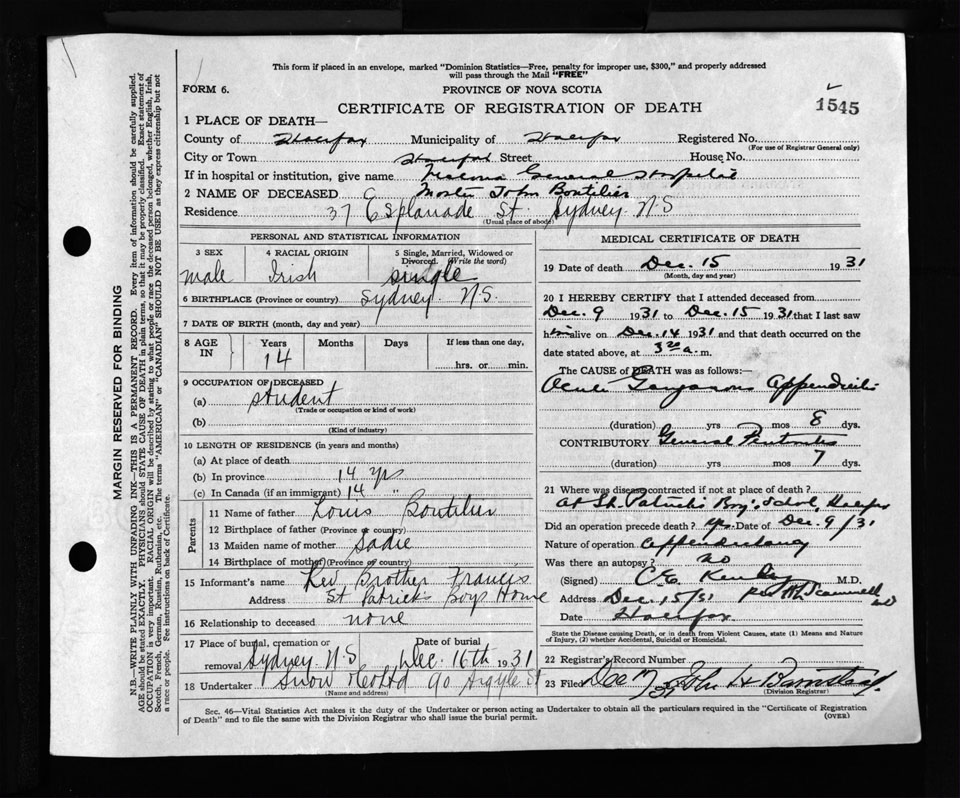 This form if placed in an envelope, marked "Dominion Statistics—Free, penalty for improper use, $300," and properly addressed
will pass through the Mail "FREE"
FORM 6.
PROVINCE OF NOVA SCOTIA
CERTIFICATE OF REGISTRATION OF DEATH
1545
1 PLACE OF DEATH—
County of Halifax Municipality of Halifax Registered No.
(For use of Registrar General only)
City or Town Halifax Street House No.
If in hospital or institution, give name Victoria General Hospital
2 NAME OF DECEASED John Boutilier
Residence 37 Esplanade St. Sydney N.S
(Usual place of abode)
PERSONAL AND STATISTICAL INFORMATION
3 SEX
male
4 RACIAL ORIGIN
Irish
5 Single, Married, Widowed or
Divorced. (Write the word)
single
6 BIRTHPLACE (Province or country) Sydney. N.S.
7 DATE OF BIRTH (month, day and year)
8 AGE
IN
Years Months Days If less than one day,
14 hrs. or min.
9 OCCUPATION OF DECEASED
(a) student
(Trade or occupation or kind of work)
(b)
(Kind of industry)
10 LENGTH OF RESIDENCE (in years and months)
(a) At place of death
(b) In province 14 yrs
(c) In Canada (if an immigrant) 14 "
Parents
11 Name of father Louis Boutilier
12 Birthplace of father (Province or country)
13 Maiden name of mother Sadie
14 Birthplace of mother (Province or country)
15 Informant's name Rev Brother Francis
Address St Patrick's Boys Home
16 Relationship to deceased none
17 Place of burial, cremation or
removal Sydney. N.S
Date of burial
Dec. 16th 1931
18 Undertaker Snow & Co Ltd 90 Argyle St
(Name and address)
MEDICAL CERTIFICATE OF DEATH
19 Date of death Dec. 15 1931
(Month, day and year)
20 I HEREBY CERTIFY that I attended deceased from
Dec. 9 1931 to Dec. 15 1931 that I last saw
him alive on Dec. 14 1931 and that death occurred on the
date stated above, at 3 20 a.m.
The CAUSE of DEATH was as follows:—
Acute Gangrenous Appendicitis
(duration) yrs mos 8 dys.
CONTRIBUTORY General Peritonitis
(duration) yrs mos 7 dys.
21 Where was disease contracted if not at place of death?
at St. Patrick's Boy's School, Halifax
Did an operation precede death? yes. Date of Dec. 9/31
Nature of operation Appendectomy
Was there an autopsy? no
(Signed) C.E. M.D.
Address Dec. 15/31
Date Halifax
State the Disease causing Death, or in death from Violent Causes, state (1) Means and Nature
of Injury, (2) whether Accidental, Suicidal or Homicidal.
22 Registrar's Record Number
23 Filed Dec John H
(Division Registrar)
Sec. 46—Vital Statistics Act makes it the duty of the Undertaker or person acting as Undertaker to obtain all the particulars required in the "Certificate of Registration
of Death" and to file the same with the Division Registrar who shall issue the burial permit.
(OVER)
MARGIN RESERVED FOR BINDING
N.B.—WRITE PLAINLY WITH UNFADING INK—THIS IS A PERMANENT RECORD. Every item of information should be carefully supplied.
AGE should be stated EXACTLY. PHYSICIANS should STATE CAUSE OF DEATH in plain terms, so that it may be properly classified. Exact statement of
OCCUPATION is very important. RACIAL ORIGIN will be described by stating to what people or race the deceased person belonged, whether English, Irish,
Scotch, French, German, Russian, Ruthenian, etc. The terms "AMERICAN" or "CANADIAN" SHOULD NOT BE USED as they express citizenship but not
a race or people. See instructions on back of Certificate.